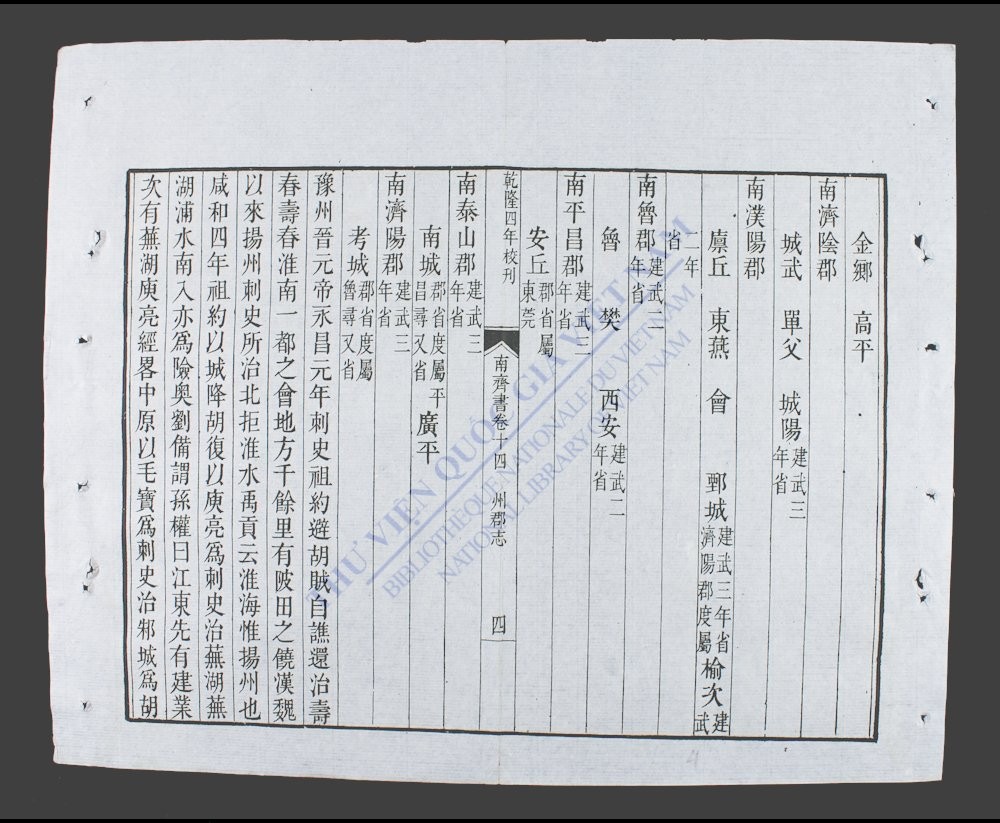 金鄉　高平
南濟陰郡
城武　單父　城陽建武三年省
南濮陽郡
廩丘　東燕　會　鄄城建武三年省濟陽郡度屬　榆次建武
二年省
南魯郡建武二年省
魯　樊　西安建武二年省
南平昌郡建武三年省
安丘郡省屬東莞
乾隆四年校刊
南齊書卷十四　州郡志　四
南泰山郡建武三年省
南城郡省度屬平昌尋又省　廣平
南濟陽郡建武三年省
考城郡省度屬魯尋又省
豫州晉元帝永昌元年刺史祖約避胡賊自譙還治壽
春壽春淮南一都之會地方千餘里有陂田之饒漢魏
以來揚州刺史所治北拒淮水禹貢云淮海惟揚州也
咸和四年祖約以城降胡復以庾亮爲刺史治蕪湖蕪
湖浦水南入亦爲險奧劉備謂孫權曰江東先有建業
次有蕪湖庾亮經畧中原以毛寶爲刺史治邾城爲胡
THƯ VIỆN QUỐC GIA VIỆT NAM
BIBLIOTHÈQUE NATIONALE DU VIETNAM
NATIONAL LIBRARY OF VIETNAM